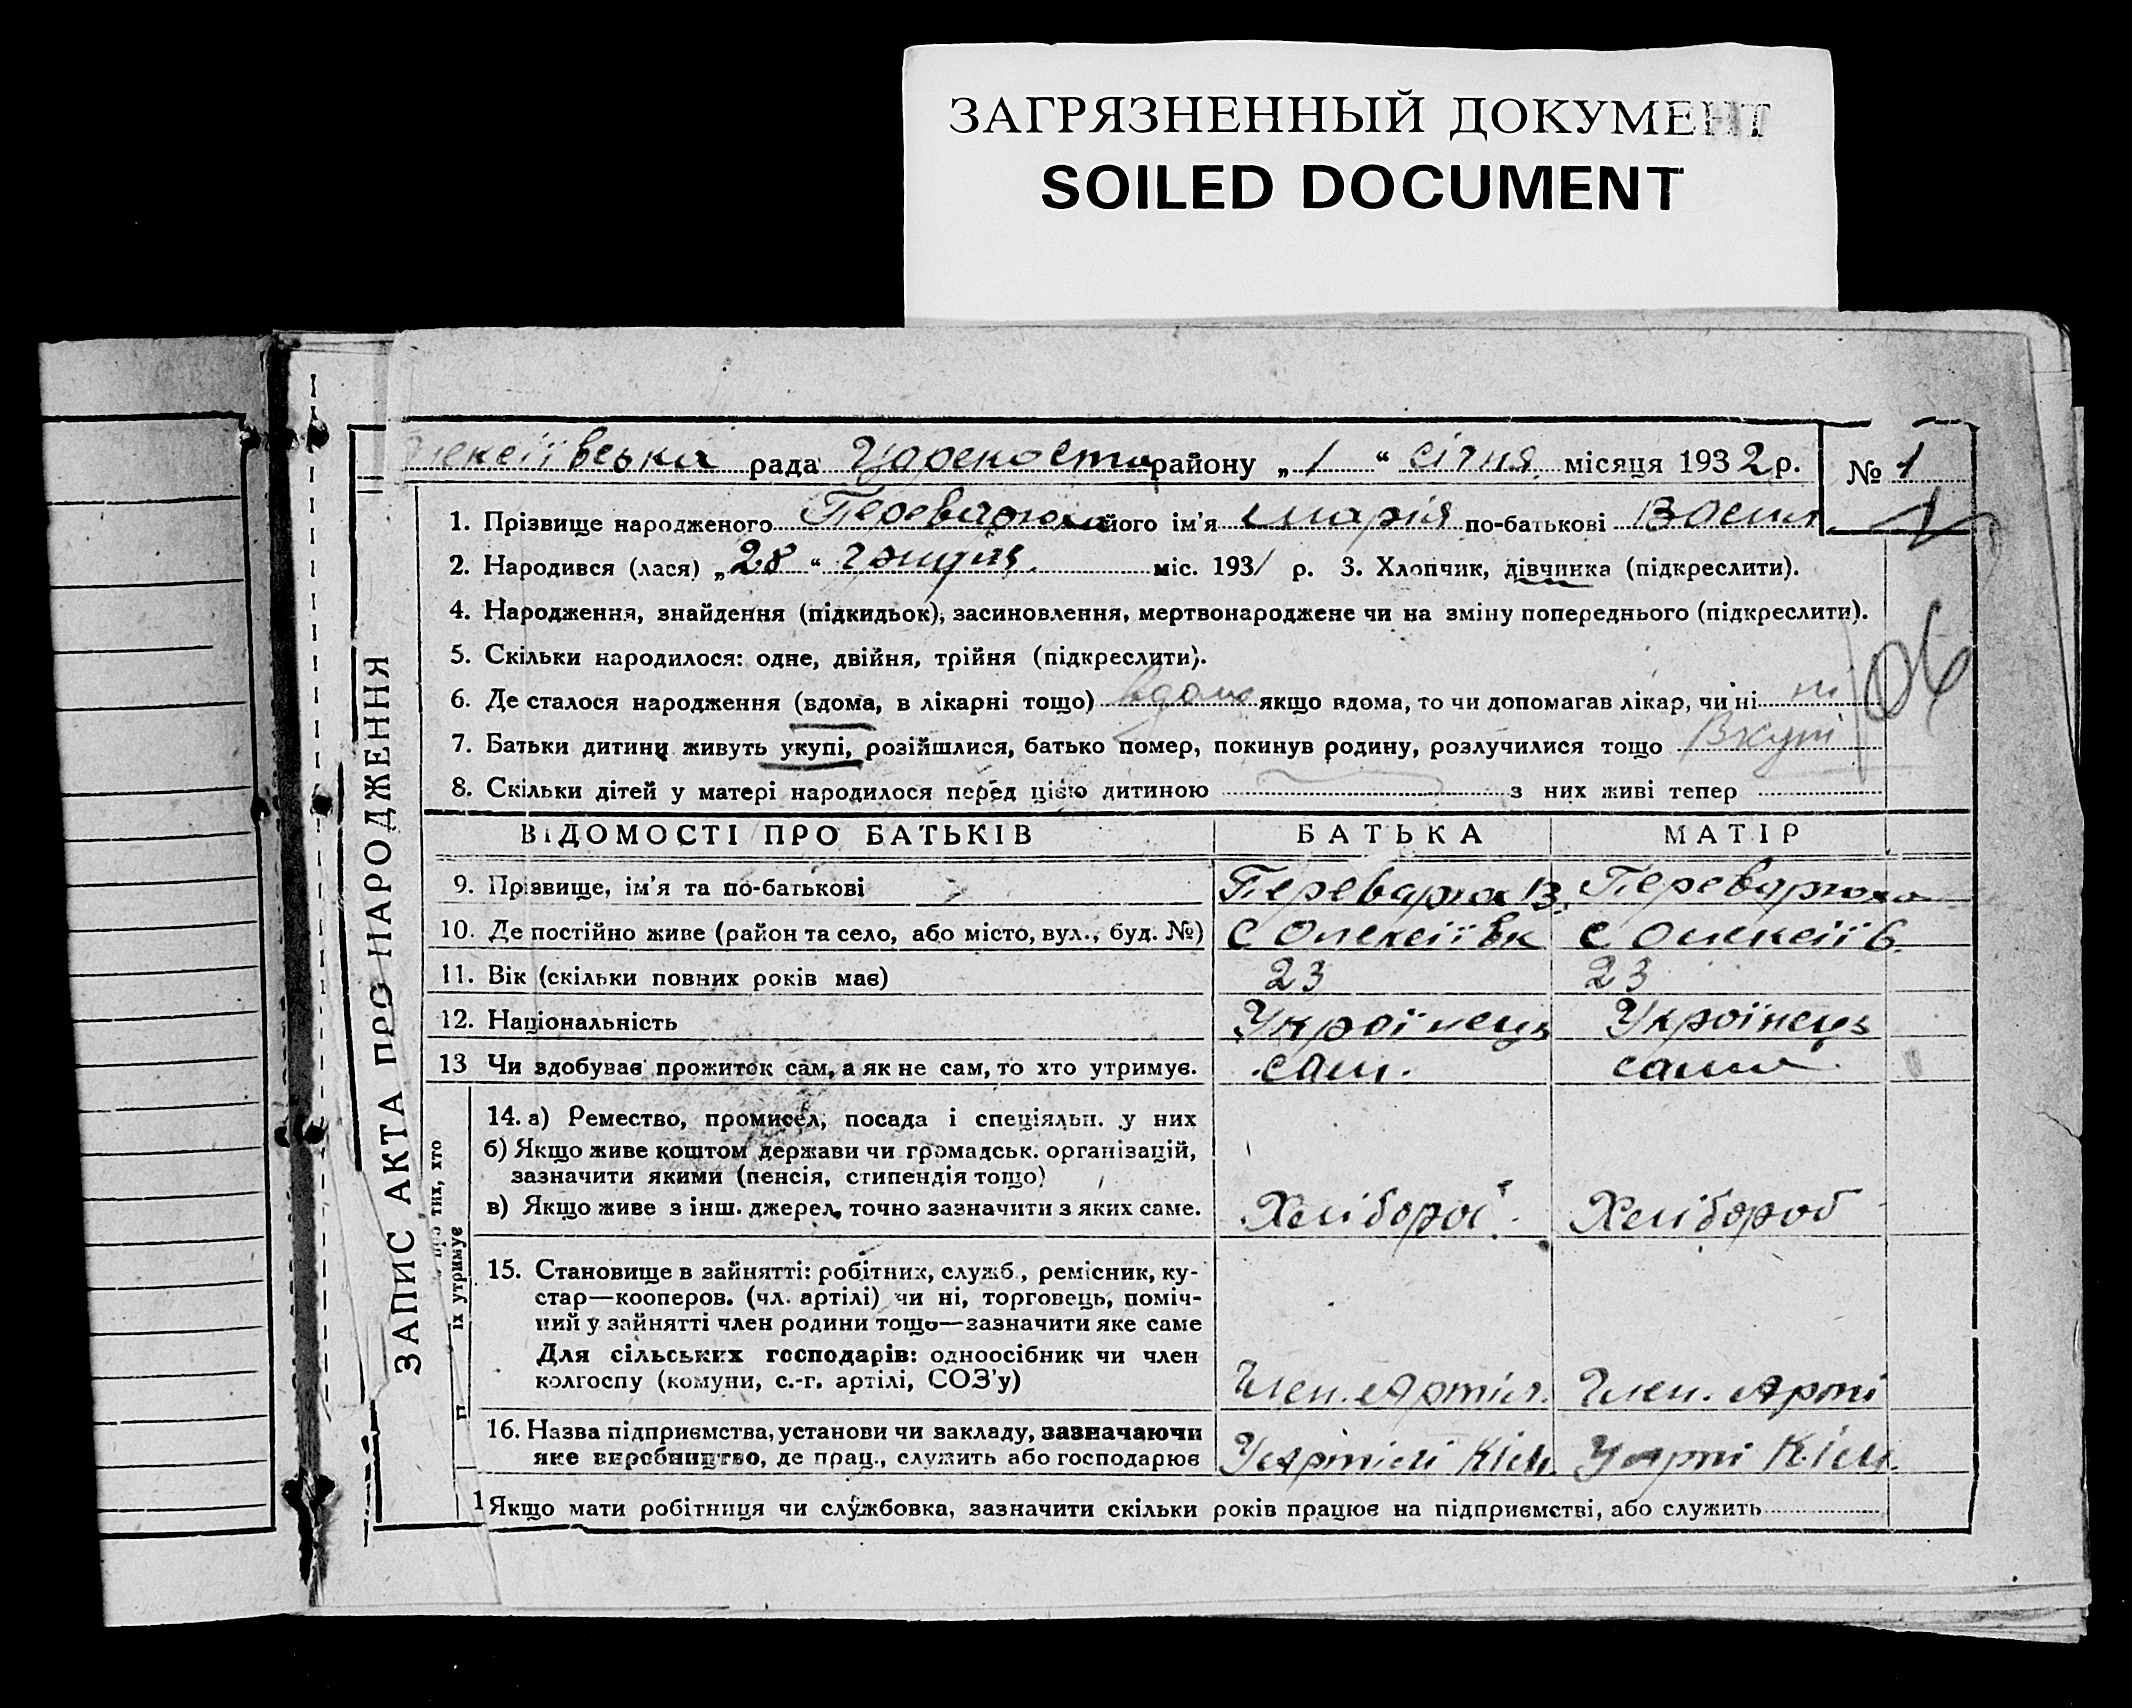 ЗАГРЯЗНЕННЫЙ ДОКУМЕНТ
SOILED DOCUMENT
рада району „1“ січня місяця 1932 р. № 1
1. Прізвище народженого його ім’я Марія по-батькові
2. Народився (лася) „28“ грудня міс. 1931 р. 3. Хлопчик, дівчинка (підкреслити).
4. Народження, знайдення (підкидьок), засиновлення, мертвонароджене чи на зміну попереднього (підкреслити).
5. Скільки народилося: одне, двійня, трійня (підкреслити).
6. Де сталося народження (вдома, в лікарні тощо) вдома якщо вдома, то чи допомагав лікар, чи ні ні
7. Батьки дитини живуть укупі, розійшлися, батько помер, покинув родину, розлучилися тощо Вкупі
8. Скільки дітей у матері народилося перед цією дитиною з них живі тепер
ВІДОМОСТІ ПРО БАТЬКІВ БАТЬКА МАТІР
9. Прізвище, ім’я та по-батькові
10. Де постійно живе (район та село, або місто, вул., буд. №) с Олексіївк с Олексіїв
11. Вік (скільки повних років має) 23 23
12. Національність Українець Українець
13 Чи здобуває прожиток сам, а як не сам, то хто утримує. сам. сама
14. а) Ремество, промисел, посада і спеціяльн. у них
б) Якщо живе коштом держави чи громадськ. організацій,
зазначити якими (пенсія, стипендія тощо)
в) Якщо живе з інш. джерел, точно зазначити з яких саме. Хлібороб Хлібороб
15. Становище в зайнятті: робітник, служб., ремісник, ку-
стар—кооперов. (чл. артілі) чи ні, торговець, поміч-
ний у зайнятті член родини тощо—зазначити яке саме
Для сільських господарів: одноосібник чи член
колгоспу (комуни, с.-г. артілі, СОЗ’у) Член. Артіл. Член. Арті
16. Назва підприємства, установи чи закладу, зазначаючи
яке виробництво, де прац., служить або господарює У Артілі У арті
1 Якщо мати робітниця чи службовка, зазначити скільки років працює на підприємстві, або служить
ЗАПИС АКТА ПРО НАРОДЖЕННЯ
тих, хто
їх утримує